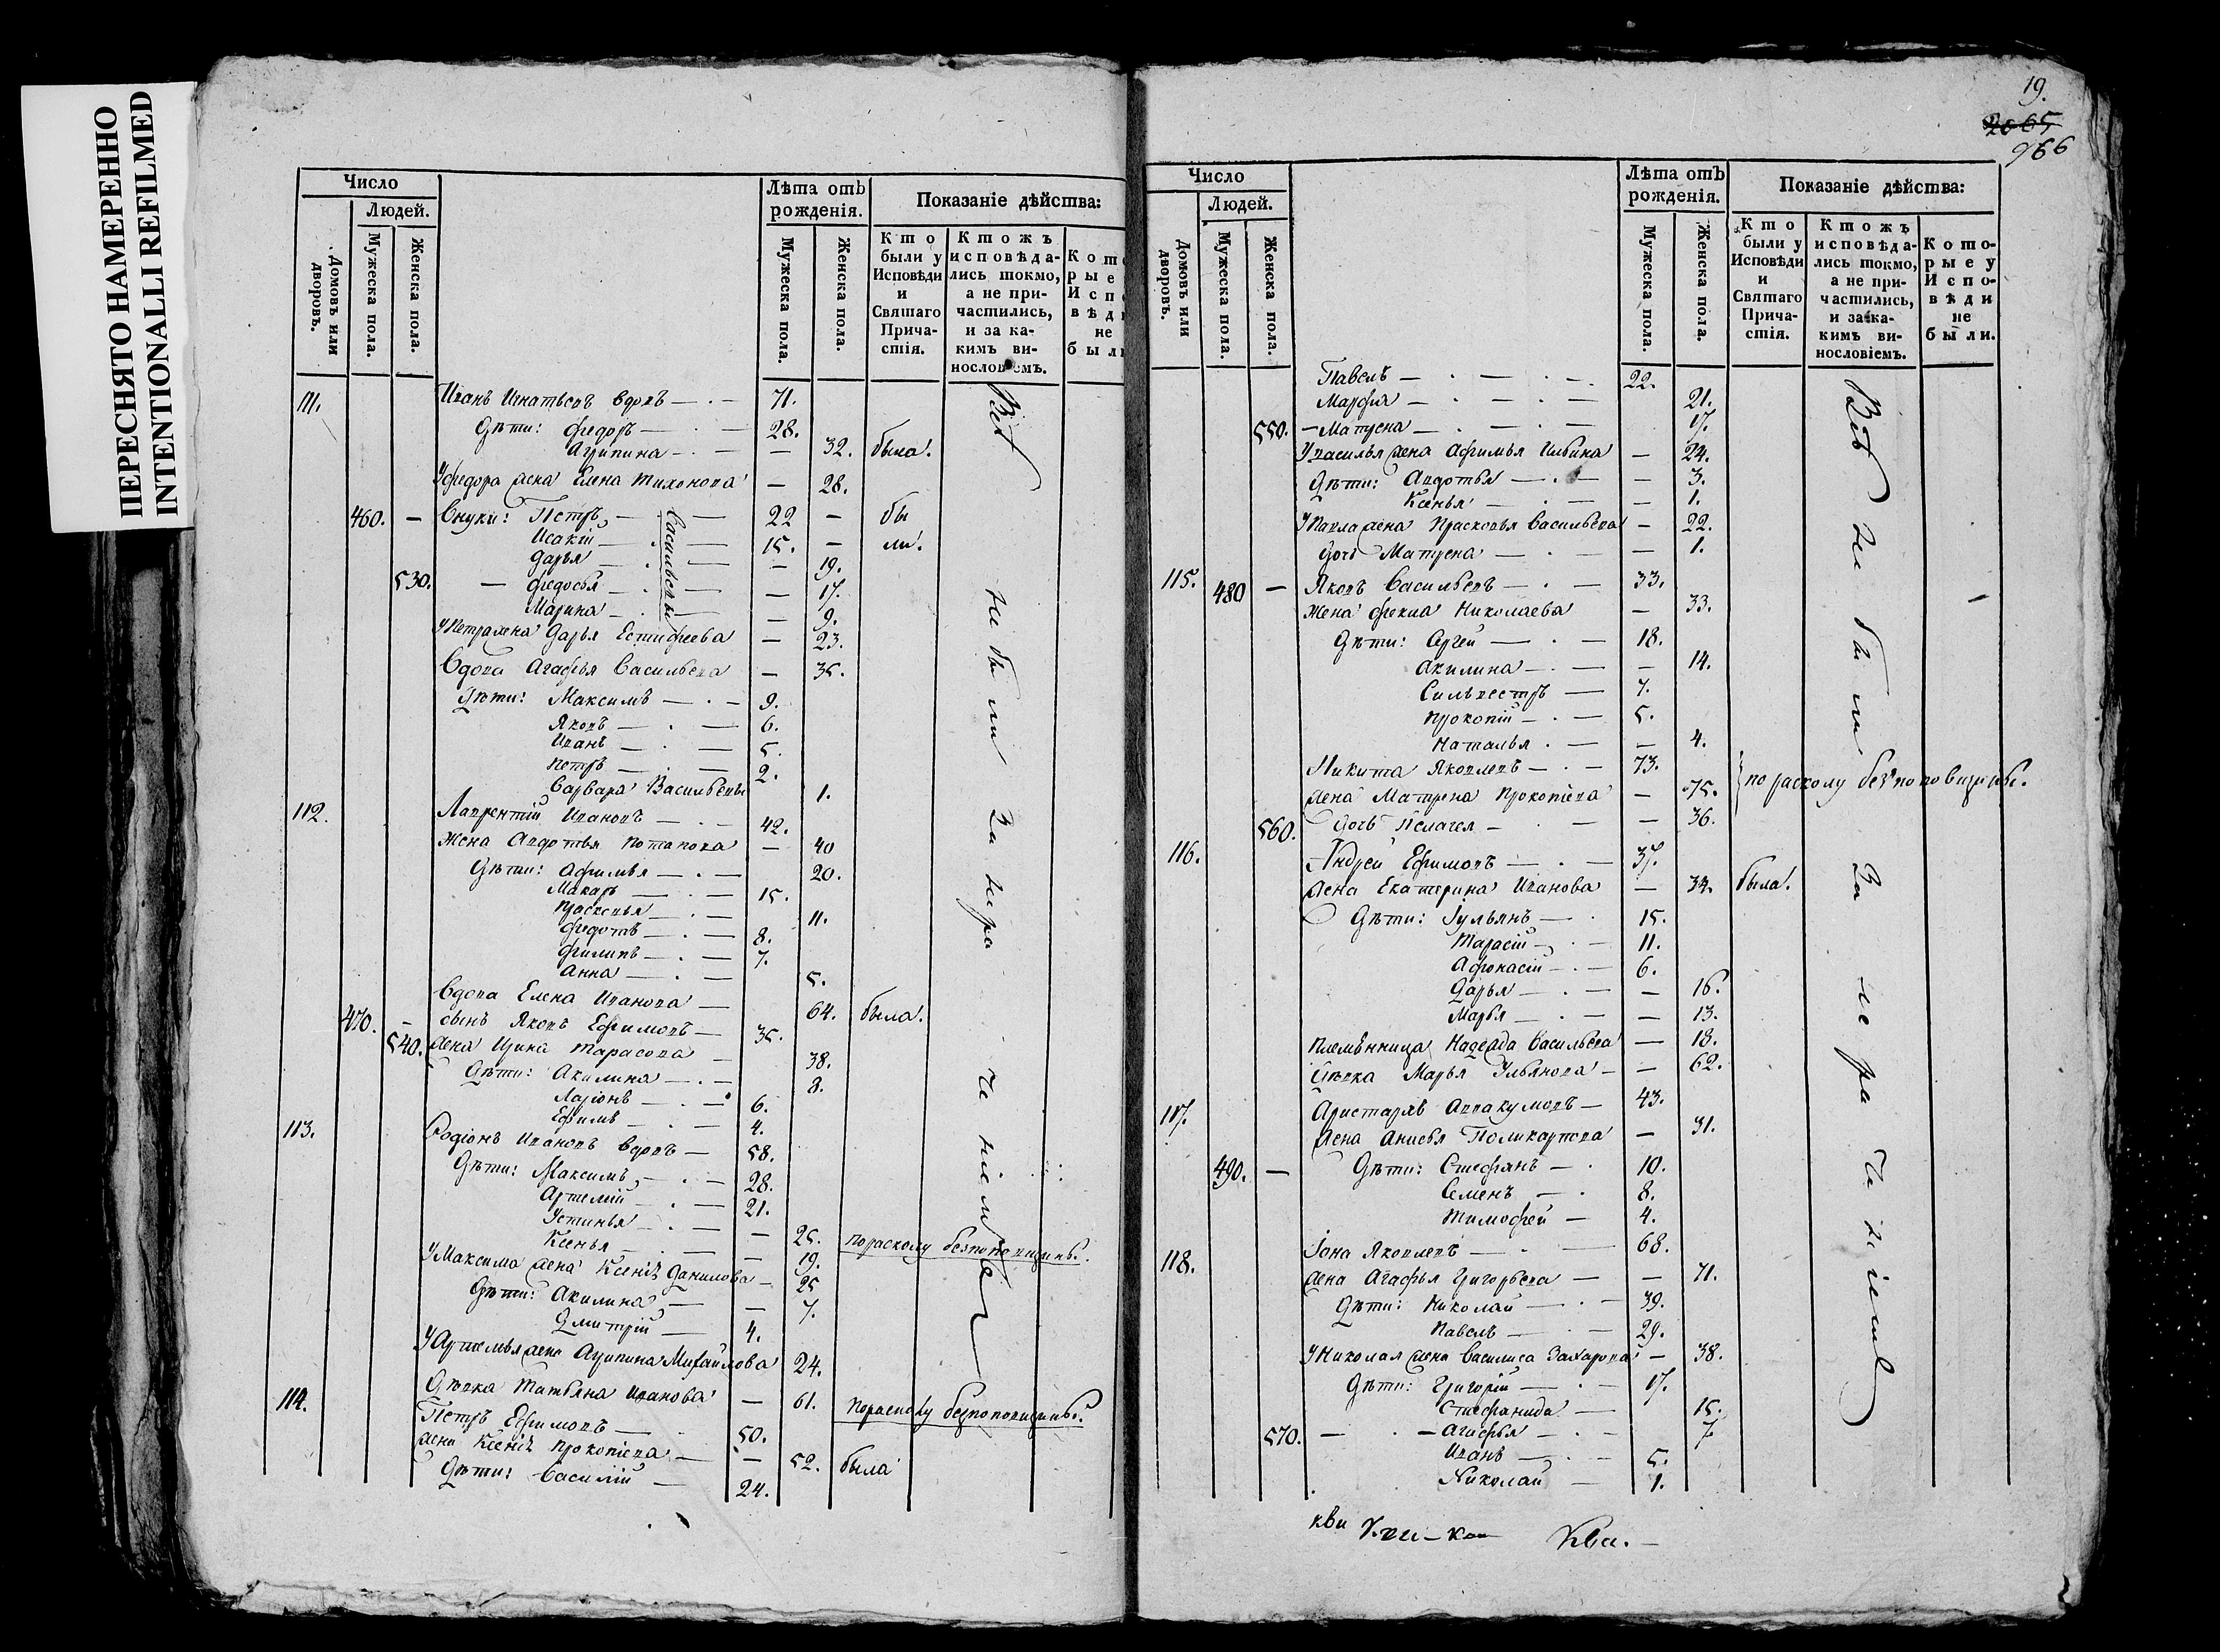 ПЕРЕСНЯТО НАМЕРЕННО
INTENTIONALLI REFILMED
Число
Людей.
Домовъ или дворовъ.
Мужеска пола.
Женска пола.
Лѣта отъ рожденія.
Мужеска пола.
Женска пола.
Показаніе дѣйства:
Кто были у Исповѣди и Святаго Причастія.
Ктожъ исповѣдались токмо, а не причастились, и за какимъ винословіемъ.
111. Иванъ Игнатьевъ вдовъ 71.
Дѣти: Федоръ 28.
Агрипина — 32. была.
У Федора жена Елена Тихонова — 28.
460. — Внуки: Петръ 22 — бы
Исакій 15. — ли.
Дарья — 19.
530. — Федосья — 17.
Марина — 9.
Васильевы
У Петра жена Дарья Естифеева — 23.
Вдова Агафья Васильева — 35.
Дѣти: Максимъ 9.
Яковъ 6.
Иванъ 5.
Петръ 2.
Варвара Васильевы 1.
112. Лаврентій Ивановъ 42.
Жена Авдотья Потапова — 40
Дѣти: Афимья 20.
Макаръ 15.
Прасковья 11.
Федотъ 8.
Филипъ 7.
Анна 5.
Вдова Елена Иванова 64. была.
470. — сынъ Яковъ Ефимовъ 35.
540. жена Ирина Тарасова 38.
Дѣти: Акилина 8.
Ларіонъ 6.
Ефимъ 4.
113. Родіонъ Ивановъ вдовъ 58.
Дѣти: Максимъ 28.
Артемій 21.
Устинья — 25. по расколу безпоповщины.
Ксенья — 19.
У Максима жена Ксенія Данилова 25
Дѣти: Акилина — 7.
Дмитрій 4.
У Артемья жена Агрипина Михайлова 24.
Дѣвка Татьяна Иванова — 61. по расколу безпоповщины.
114. Петръ Ефимовъ 50.
жена Ксенія Прокопіева — 52. была
Дѣти: Василій 24.
Всѣ не были за нерачениемъ
19.
2065
966
Число
Людей.
Домовъ или дворовъ.
Мужеска пола.
Женска пола.
Лѣта отъ рожденія.
Мужеска пола.
Женска пола.
Показаніе дѣйства:
Кто были у Исповѣди и Святаго Причастія.
Ктожъ исповѣдались токмо, а не причастились, и за какимъ винословіемъ.
Которые у Исповѣди не были.
Павелъ 22.
Марфа 21.
550. — Матрена 17.
У Василья жена Афимья Ильина — 24.
Дѣти: Авдотья — 3.
Ксенья — 1.
У Павла жена Прасковья Васильева — 22.
Дочь Матрена — 1.
115. 480 — Яковъ Васильевъ 33.
Жена Фекла Николаева — 33.
Дѣти: Сергей 18.
Акилина — 14.
Сильвестръ 7.
Прокопій 5.
Наталья — 4.
Никита Яковлевъ 73.
жена Матрена Прокопіева — 75. по расколу безпоповщины.
560. Дочь Пелагея — 36.
116. Андрей Ефимовъ 37.
жена Екатерина Иванова — 34. была.
Дѣти: Іульянъ 15.
Тарасій 11.
Афонасій 6.
Дарья — 16.
Марья — 13.
Племѣнница Надежда Васильева — 13.
Дѣвка Марья Ульянова — 62.
117. Аристархъ Аввакумовъ 43.
жена Анисья Поликарпова — 31.
490. — Дѣти: Стефанъ 10.
Семенъ 8.
Тимофей 4.
118. Іона Яковлевъ 68.
жена Агафья Григорьева — 71.
Дѣти: Николай 39.
Павелъ 29.
У Николая жена Василиса Захарова — 38.
Дѣти: Григорій 17.
Стефанида 15.
570. — Агафья 7.
Иванъ 5.
Николай 1.
Всѣ не были за нерачениемъ